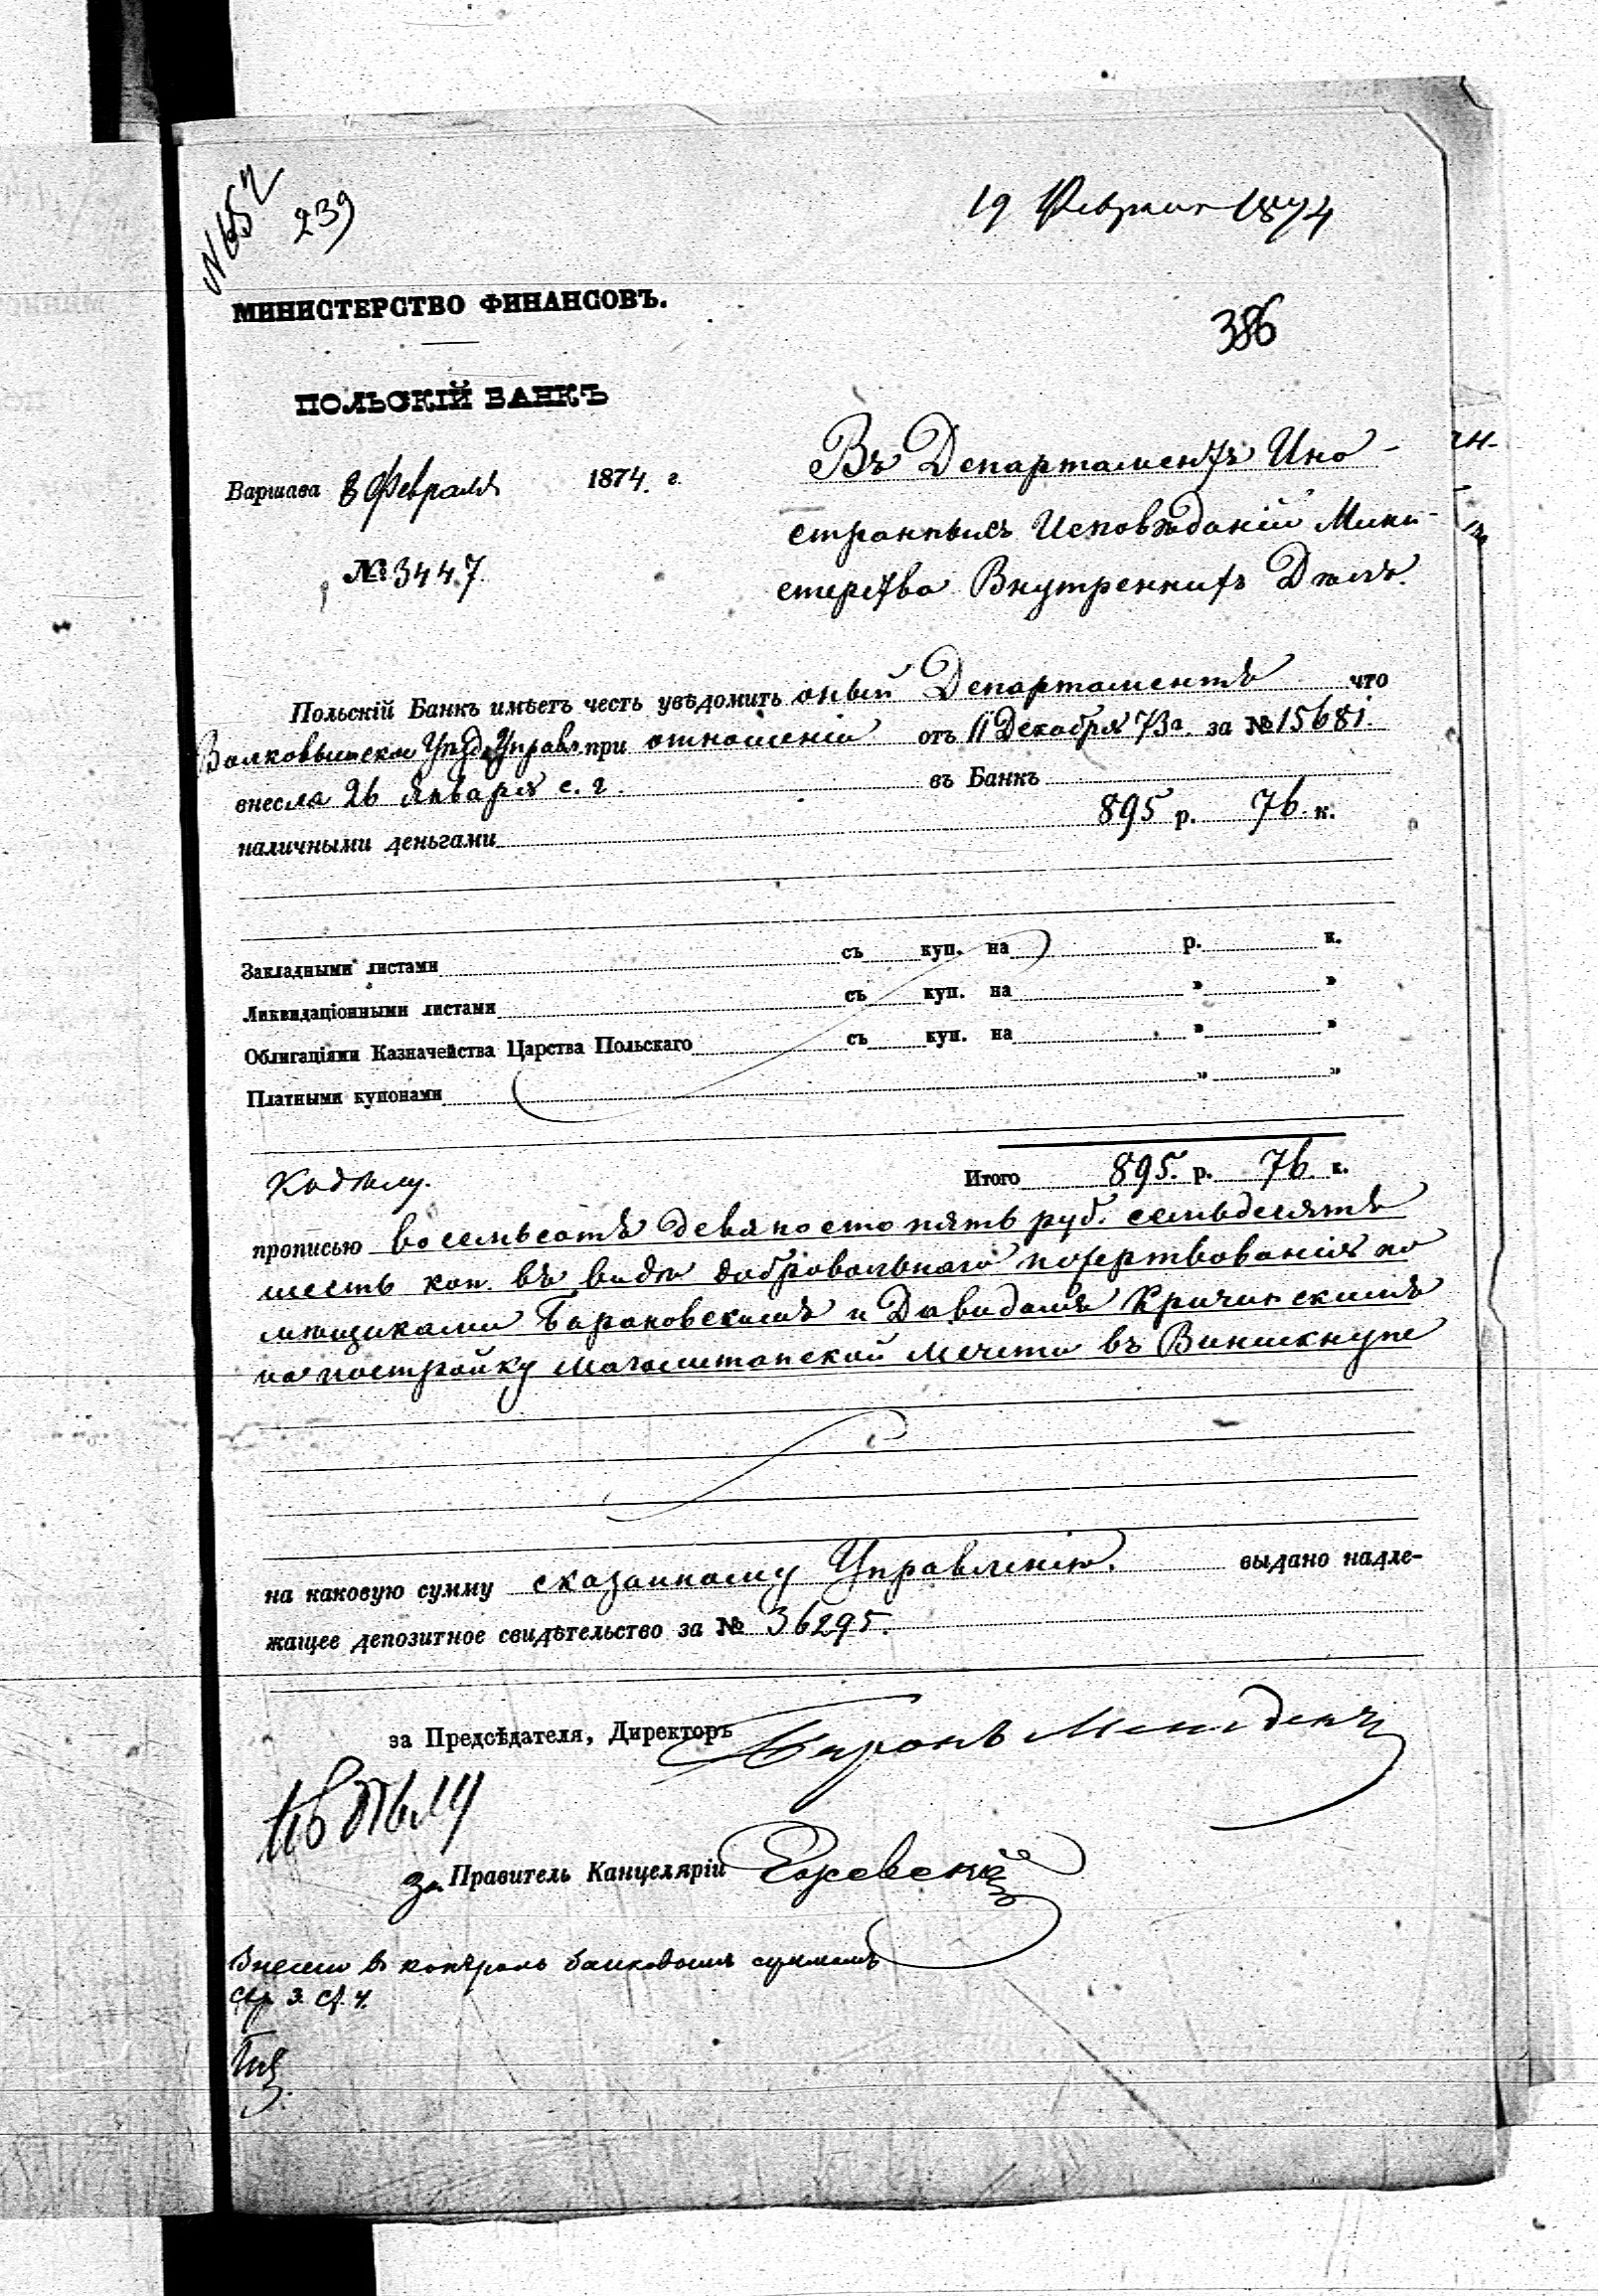 № 652
239
19 Февраля 1874
МИНИСТЕРСТВО ФИНАНСОВЪ.
386
ПОЛЬСКІЙ БАНКЪ
Варшава 8 Февраля 1874 г.
№ 3447.
Въ Департаментъ Ино-
странныхъ Исповѣданій Мини-
стерства Внутреннихъ Дѣлъ.
Польскій Банкъ имѣетъ честь увѣдомить оный Департаментъ что
Волковышское Уѣзд. Управл. при отношеніи отъ 11 Декабря 73 г. за № 15681.
внесла 26 Января с. г. въ Банкъ
наличными деньгами 895 р. 76. к.
Закладными листами съ куп. на р. к.
Ликвидаціонными листами съ куп. на " "
Облигаціями Казначейства Царства Польскаго съ куп. на " "
Платными купонами " "
Итого 895. р. 76. к.
Къ дѣлу.
прописью восемьсотъ девяносто пять руб. семьдесятъ
шесть коп. въ видѣ добровольнаго пожертвованія по
мѣщиками Барановскимъ и Давидомъ Кричинскимъ
на постройку магометанской мечети въ Винкшнупе
на каковую сумму сказанному Управленію. выдано надле-
жащее депозитное свидѣтельство за № 36295.
за Предсѣдателя, Директоръ Баронъ Менгденъ
Къ дѣлу
за Правитель Канцеляріи Ежевскій
Внесено въ контроль банковымъ суммамъ
стр. 3. ст. 4.